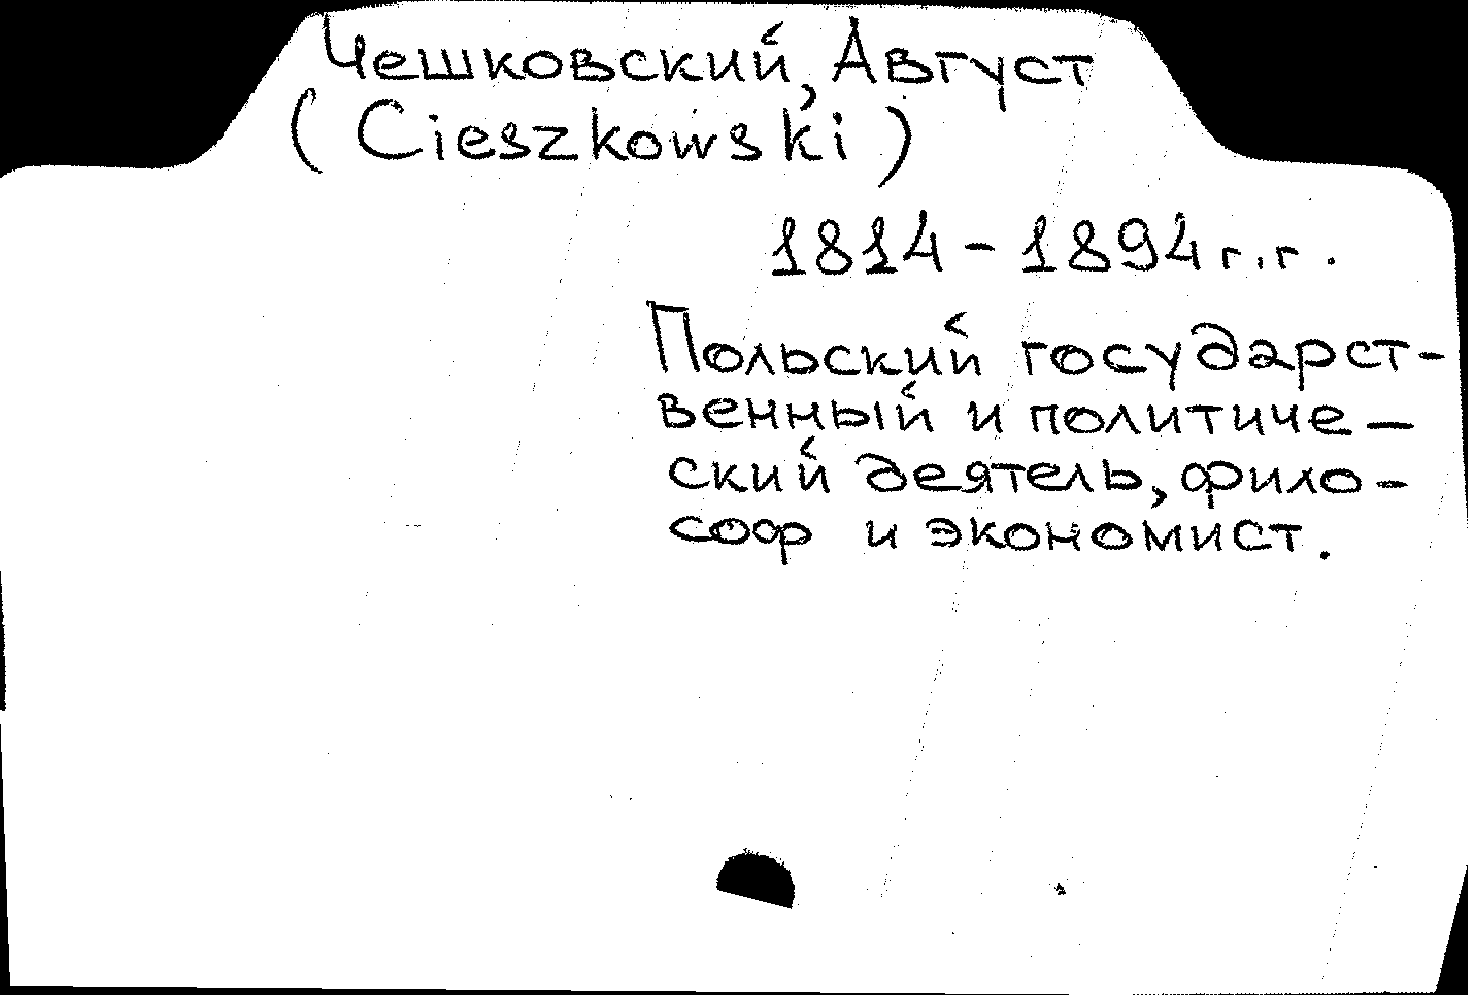 Чешковский, Август
(Cieszkowski)
1814-1894 г.г.
Польский государст-
венный и политиче-
ский деятель, фило-
соф и экономист.